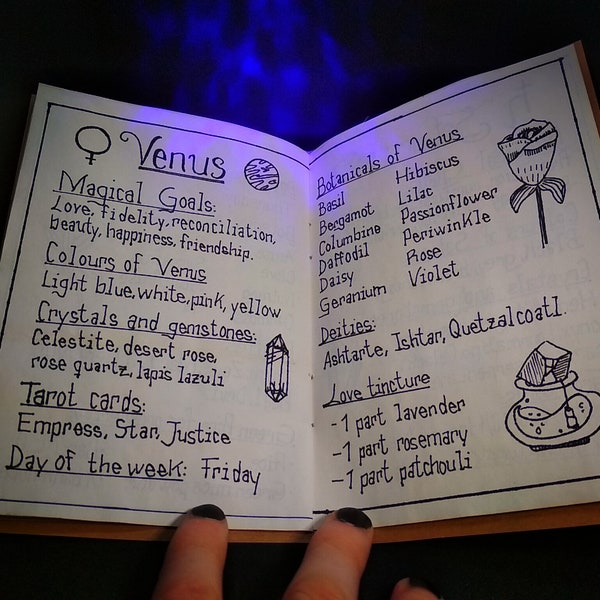 ♀ Venus
Magical Goals:
Love, fidelity, reconciliation,
beauty, happiness, friendship.
Colours of Venus
Light blue, white, pink, yellow
Crystals and gemstones:
Celestite, desert rose,
rose quartz, lapis lazuli
Tarot cards:
Empress, Star, Justice
Day of the week: Friday
Botanicals of Venus
Basil
Bergamot
Columbine
Daffodil
Daisy
Geranium
Hibiscus
Lilac
Passionflower
Periwinkle
Rose
Violet
Deities:
Ashtarte, Ishtar, Quetzalcoatl.
Love tincture
-1 part lavender
-1 part rosemary
-1 part patchouli